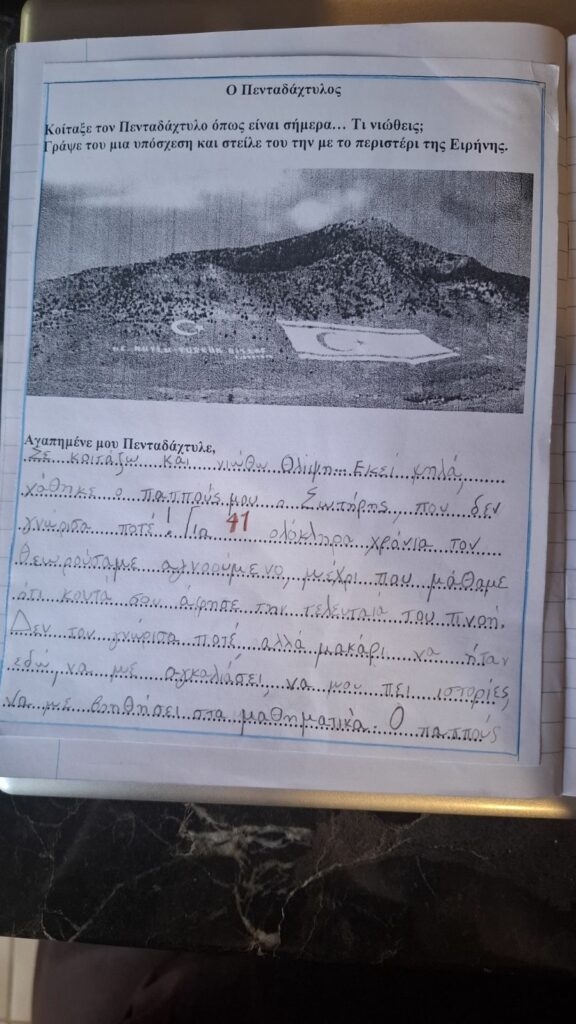 Ο Πενταδάχτυλος
Κοίταξε τον Πενταδάχτυλο όπως είναι σήμερα… Τι νιώθεις;
Γράψε του μια υπόσχεση και στείλε του την με το περιστέρι της Ειρήνης.
NE MUTLU TÜRKÜM DİYENE
Αγαπημένε μου Πενταδάχτυλε,
Σε κοιτάζω και νιώθω θλίψη... Εκεί ψηλά,
χάθηκε ο παππούς μου ο Σωτήρης, που δεν
γνώρισα ποτέ! Για 41 ολόκληρα χρόνια τον
θεωρούσαμε αγνοούμενο, μέχρι που μάθαμε
ότι κοντά σου άφησε την τελευταία του πνοή.
Δεν τον γνώρισα ποτέ αλλά μακάρι να ήταν
εδώ, να με αγκαλιάσει, να μου πει ιστορίες,
να με βοηθήσει στα μαθηματικά. Ο παππούς